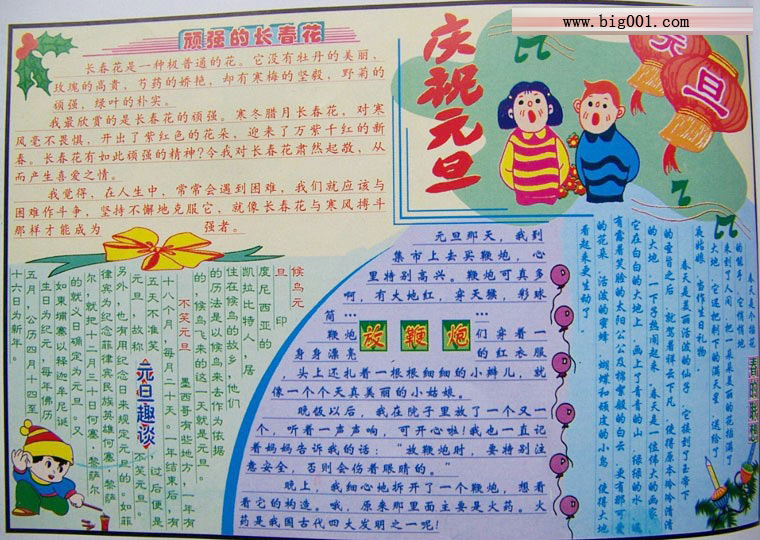 www.big001.com
顽强的长春花
长春花是一种极普通的花。它没有牡丹的美丽、
玫瑰的高贵，芍药的娇艳，却有寒梅的坚毅，野菊的
顽强，绿叶的朴实。
我最欣赏的是长春花的顽强。寒冬腊月长春花，对寒
风毫不畏惧，开出了紫红色的花朵，迎来了万紫千红的新
春。长春花有如此顽强的精神？令我对长春花肃然起敬，从
而产生喜爱之情。
我觉得，在人生中，常常会遇到困难，我们就应该与
困难作斗争，坚持不懈地克服它、就像长春花与寒风搏斗
那样才能成为 强者。
庆祝元旦
元旦
元旦那天，我到
集市上去买鞭炮，心
里特别高兴。鞭炮可真多
啊，有大地红，穿天猴，彩球
筒…
鞭炮 们穿着一
放鞭炮
身身漂亮 的红衣服
头上还扎着一根根细细的小辫儿，就
像一个个天真美丽的小姑娘。
晚饭以后，我在院子里放了一个又一
个，听着一声声响，可开心啦！我也一直记
着妈妈告诉我的话：“放鞭炮时，要特别注
意安全，否则会伤着眼睛的。”
晚上，我细心地拆开了一个鞭炮，想看
看它的构造。哦，原来那里面主要是火药。火
药是我国古代四大发明之一呢！
元旦趣谈
候鸟元
旦 印
度尼西亚的
凯拉比特人，居
住在候鸟的故乡，他们
的历法是以候鸟来去作为依据
的，候鸟飞来的这一天就是元旦。
不笑元旦
墨西哥有些地方，一年有
十八个月，每月二十天。一年结束后，有
五天不准笑， 过后便是
元旦，故称 不笑元旦
另外，也有用纪念日来规定元旦的。如菲
律宾为纪念菲律宾民族英雄何塞·黎萨
尔，就把十二月三十日何塞·黎萨尔
的就义日确定为元旦。又
如柬埔寨以释迦牟尼诞
生日为纪元，每年佛历
五月，公历四月十四至
十六日为新年。
春天是个插花
的能手，它悄悄地
来到了 ，把一朵朵美丽的花插满了
大地。它还把剩下的满天星，送给了
英姑娘，当作生日礼物。
春天是美丽活泼的仙子，它接到了玉帝下
的圣旨之后，就驾着祥云下凡，使得原本冷冷清清
的大地，一下子热闹起来。春天是一位伟大的画家，
它在白白的大地上，画上了青青的山，绿绿的水，还
有露着笑脸的太阳公公及棉絮般的白云，更有那可爱
的花朵、活泼的蜜蜂、蝴蝶和顽皮的小鸟，使得大地
看起来更生动了。